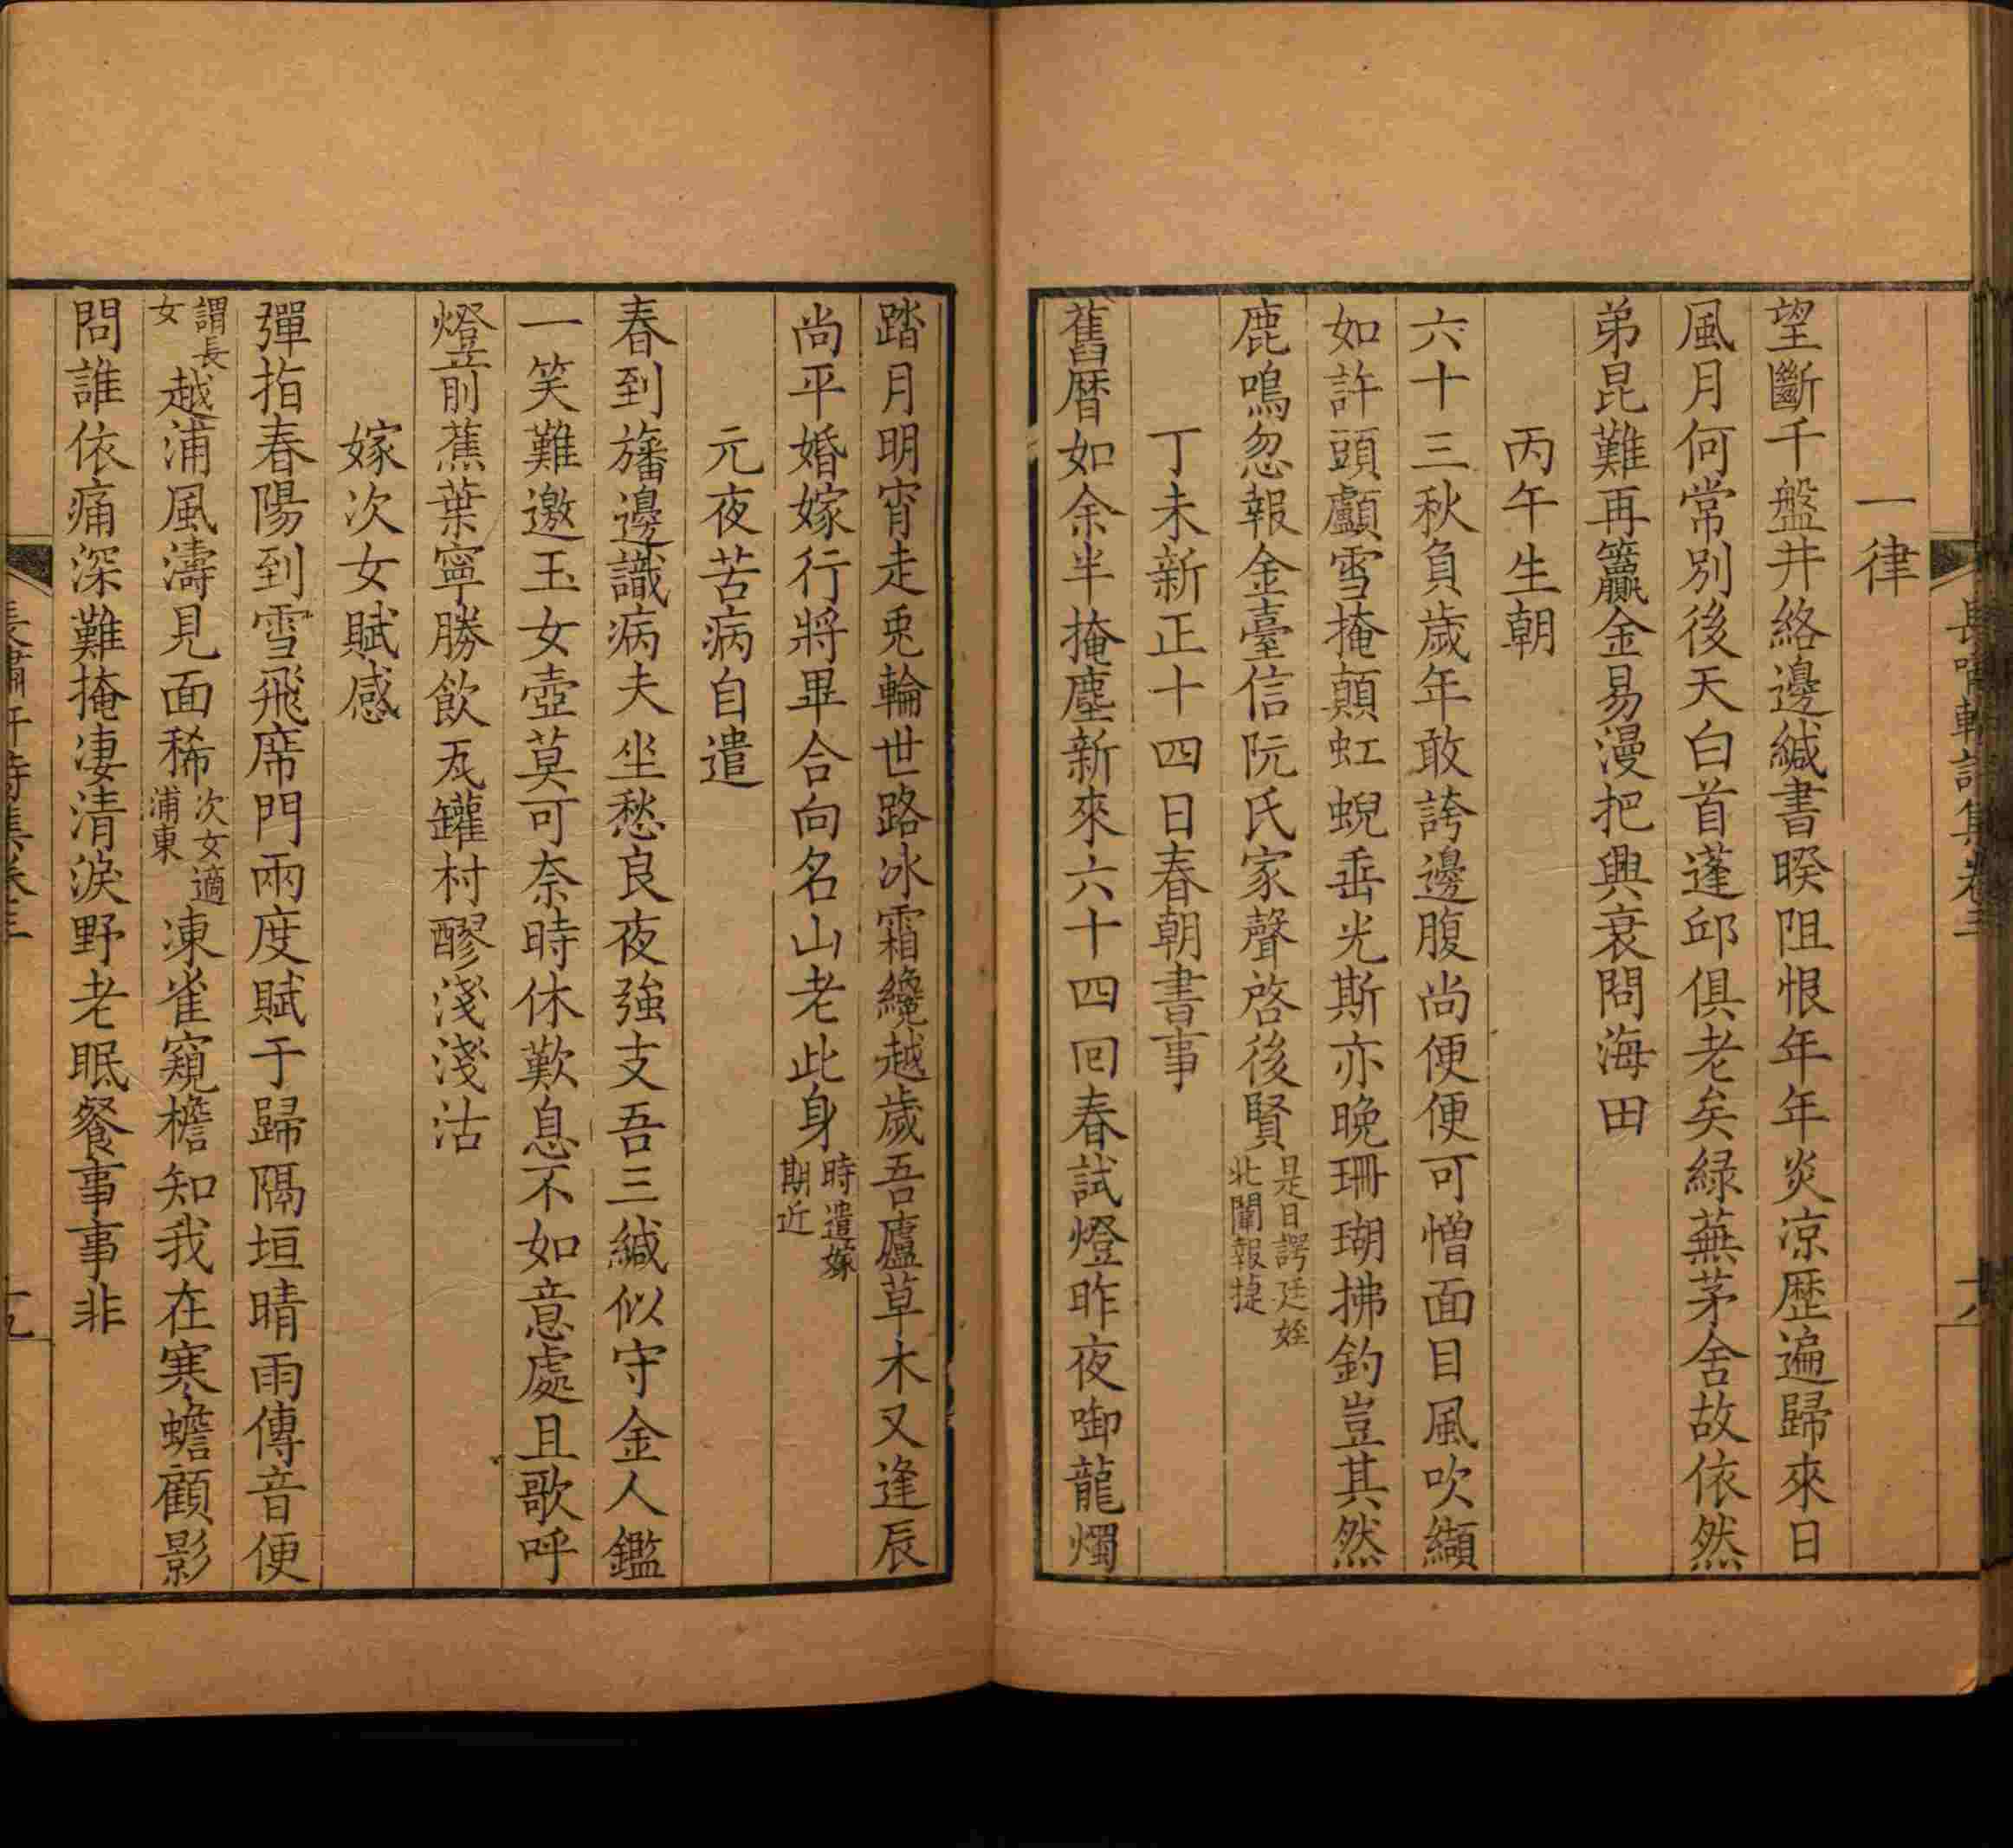 一律
望斷千盤井絡邊緘書暌阻恨年年炎凉歷遍歸來日
風月何常別後天白首蓬邱俱老矣緑蕪茅舍故依然
弟昆難再籯金易漫把興衰問海田
丙午生朝
六十三秋負歲年敢誇邊腹尚便便可憎面目風吹纈
如許頭顱雪掩顛虹蜺垂光斯亦晚珊瑚拂釣豈其然
鹿鳴忽報金臺信阮氏家聲啓後賢是日諤廷姪北闈報捷
丁未新正十四日春朝書事
舊曆如余半掩塵新來六十四回春試燈昨夜啣龍燭
踏月明宵走兎輪世路冰霜纔越歲吾廬草木又逢辰
尚平婚嫁行將畢合向名山老此身時遣嫁期近
元夜苦病自遣
春到旛邊識病夫坐愁良夜強支吾三緘似守金人鑑
一笑難邀玉女壺莫可奈時休歎息不如意處且歌呼
燈前蕉葉寧勝飲瓦罐村醪淺淺沽
嫁次女賦感
彈指春陽到雪飛席門兩度賦于歸隔垣晴雨傳音便
謂長女越浦風濤見面稀次女適浦東凍雀窺檐知我在寒蟾顧影
問誰依痛深難掩凄清淚野老眠餐事事非